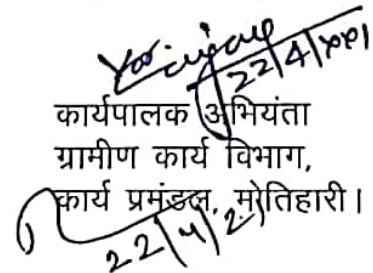 22/4/2021
कार्यपालक अभियंता
ग्रामीण कार्य विभाग,
कार्य प्रमंडल, मोतिहारी।
22/4/21